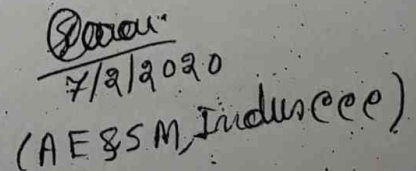 7/2/2020
(AE&SM, Induseee)